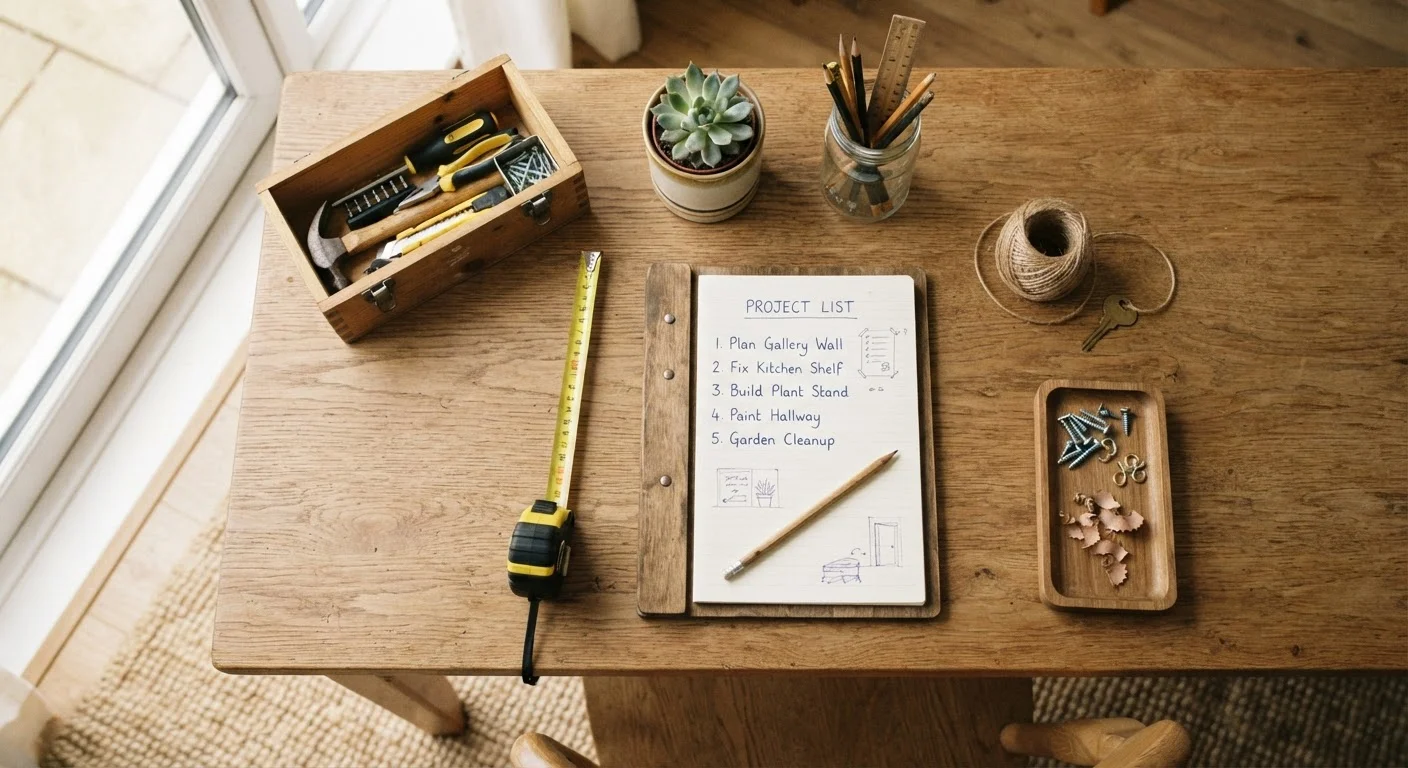 PROJECT LIST
1. Plan Gallery Wall
2. Fix Kitchen Shelf
3. Build Plant Stand
4. Paint Hallway
5. Garden Cleanup